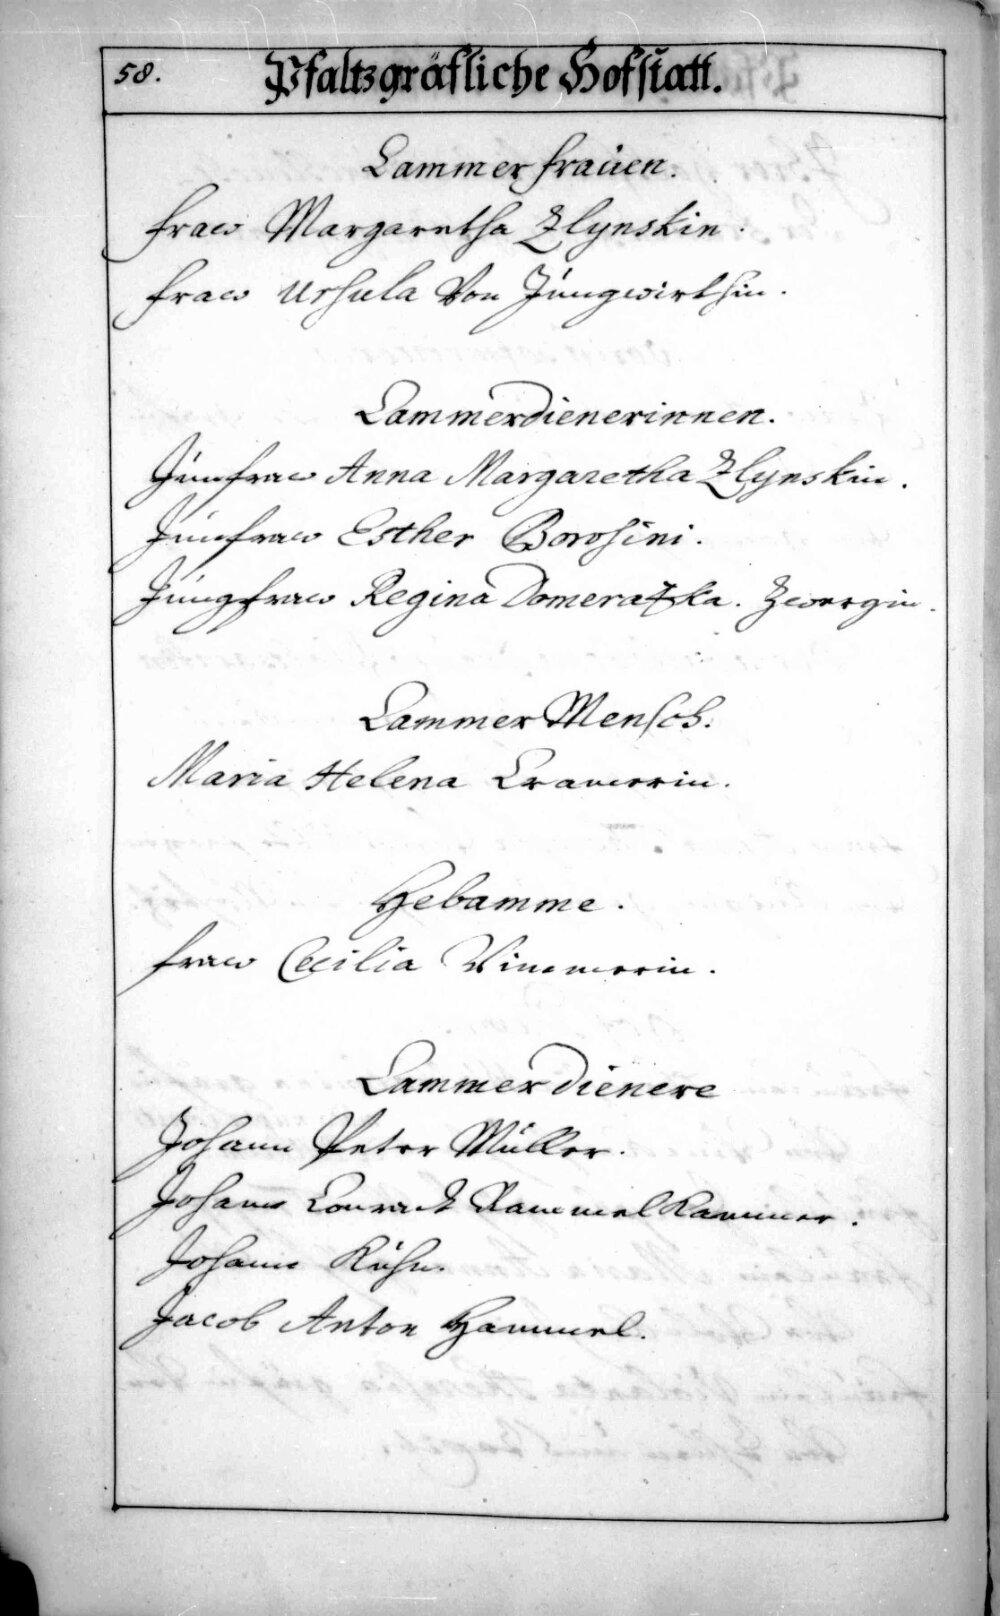 58. Pfaltzgräfliche Hofstatt.
Cammerfrauen.
Fraw Margaretha Zlynskin.
Fraw Ursula Von Jungwirthin.
Cammerdienerinnen.
Junfraw Anna Margaretha Zlynskin.
Junfraw Esther Borosini.
Jungfraw Regina Domeratzka. Zwergin.
Cammer Mensch.
Maria Helena Cramerin.
Hebamme.
Fraw Cecilia Vimmerin.
Cammerdienere
Johann Peter Müller.
Johann Conradt Rammelkammer.
Johann Kühn.
Jacob Anton Hammel.